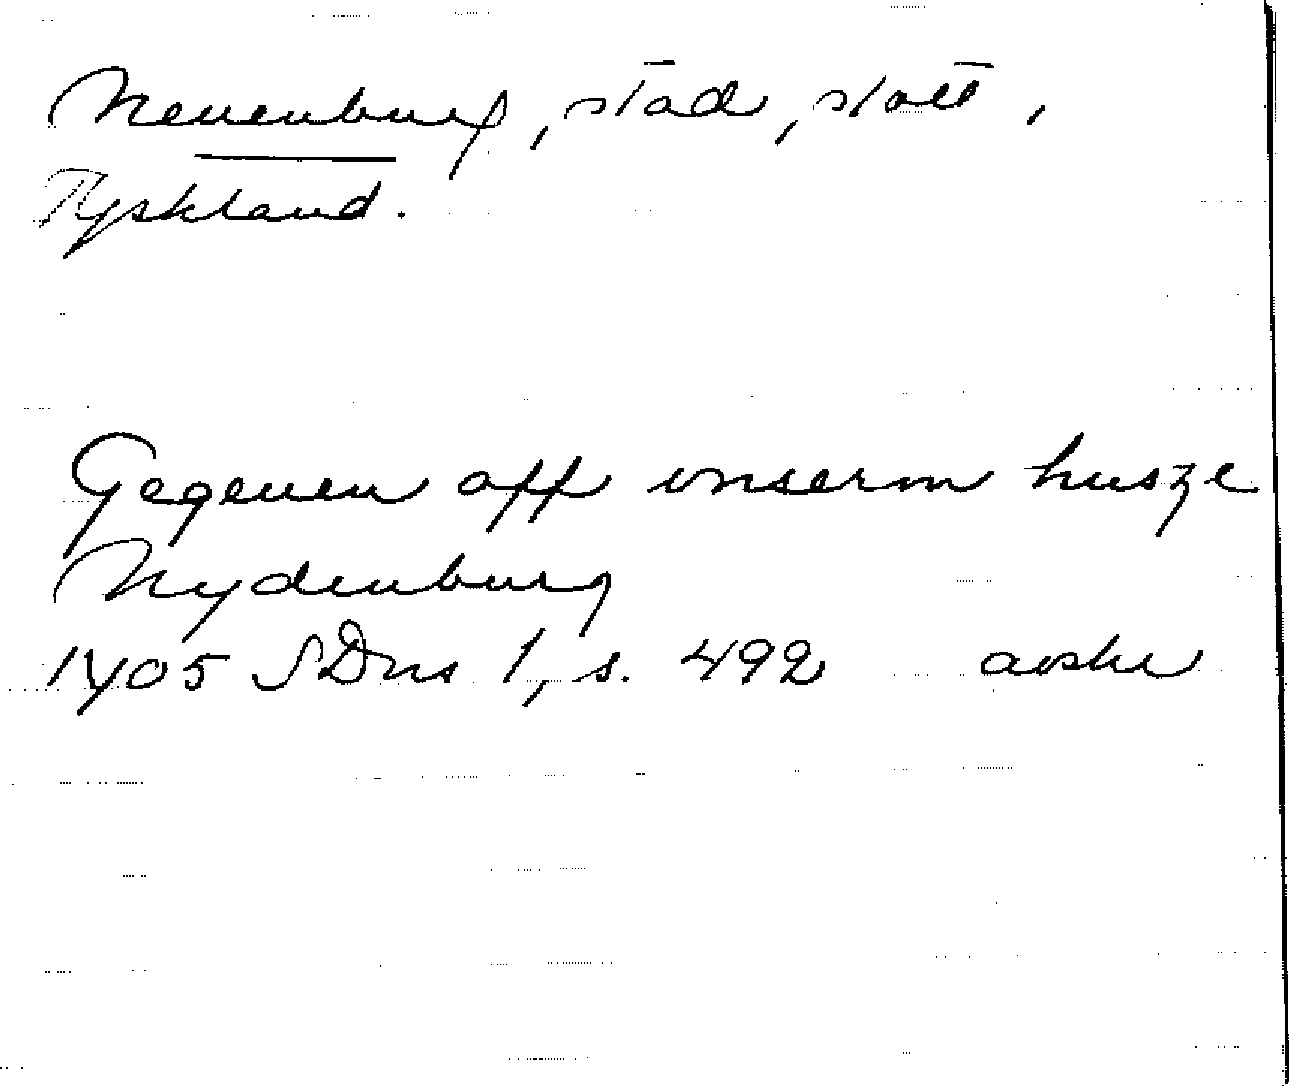 Neuenburg, stad, slott,
Tyskland.
Gegeuen off vnserm husze
Nydenburg
1405 SDns 1, s. 492 avskr